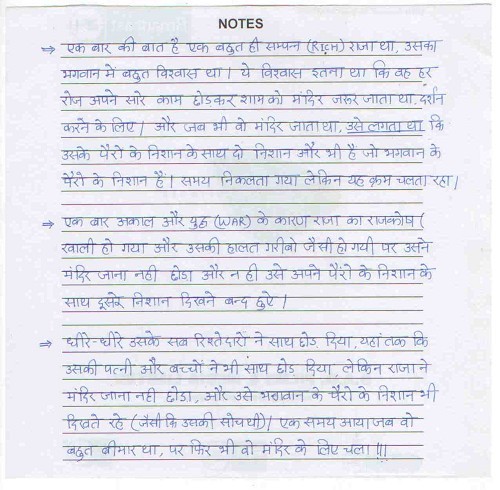 NOTES
⇒ एक बार की बात है एक बहुत ही सम्पन (RICH) राजा था, उसका
भगवान में बहुत विश्वास था। ये विश्वास इतना था कि वह हर
रोज अपने सारे काम छोडकर शाम को मंदिर जरुर जाता था, दर्शन
करने के लिए। और जब भी वो मंदिर जाता था, उसे लगता था कि
उसके पैरो के निशान के साथ दो निशान और भी हैं जो भगवान के
पैरो के निशान हैं। समय निकलता गया लेकिन यह क्रम चलता रहा।
⇒ एक बार अकाल और युद्ध (WAR) के कारण राजा का राजकोष (
खाली हो गया और उसकी हालत गरीबो जैसी हो गयी, पर उसने
मंदिर जाना नही छोडा और न ही उसे अपने पैरो के निशान के
साथ दूसरे निशान दिखने बन्द हुए।
⇒ धीरे-धीरे उसके सब रिश्तेदारों ने साथ छोड दिया, यहां तक कि
उसकी पत्नी और बच्चों ने भी साथ छोड दिया, लेकिन राजा ने
मंदिर जाना नही छोडा, और उसे भगवान के पैरो के निशान भी
दिखते रहे (जैसी कि उसकी सोच थी)। एक समय आया जब वो
बहुत बीमार था, पर फिर भी वो मंदिर के लिए चला !!!